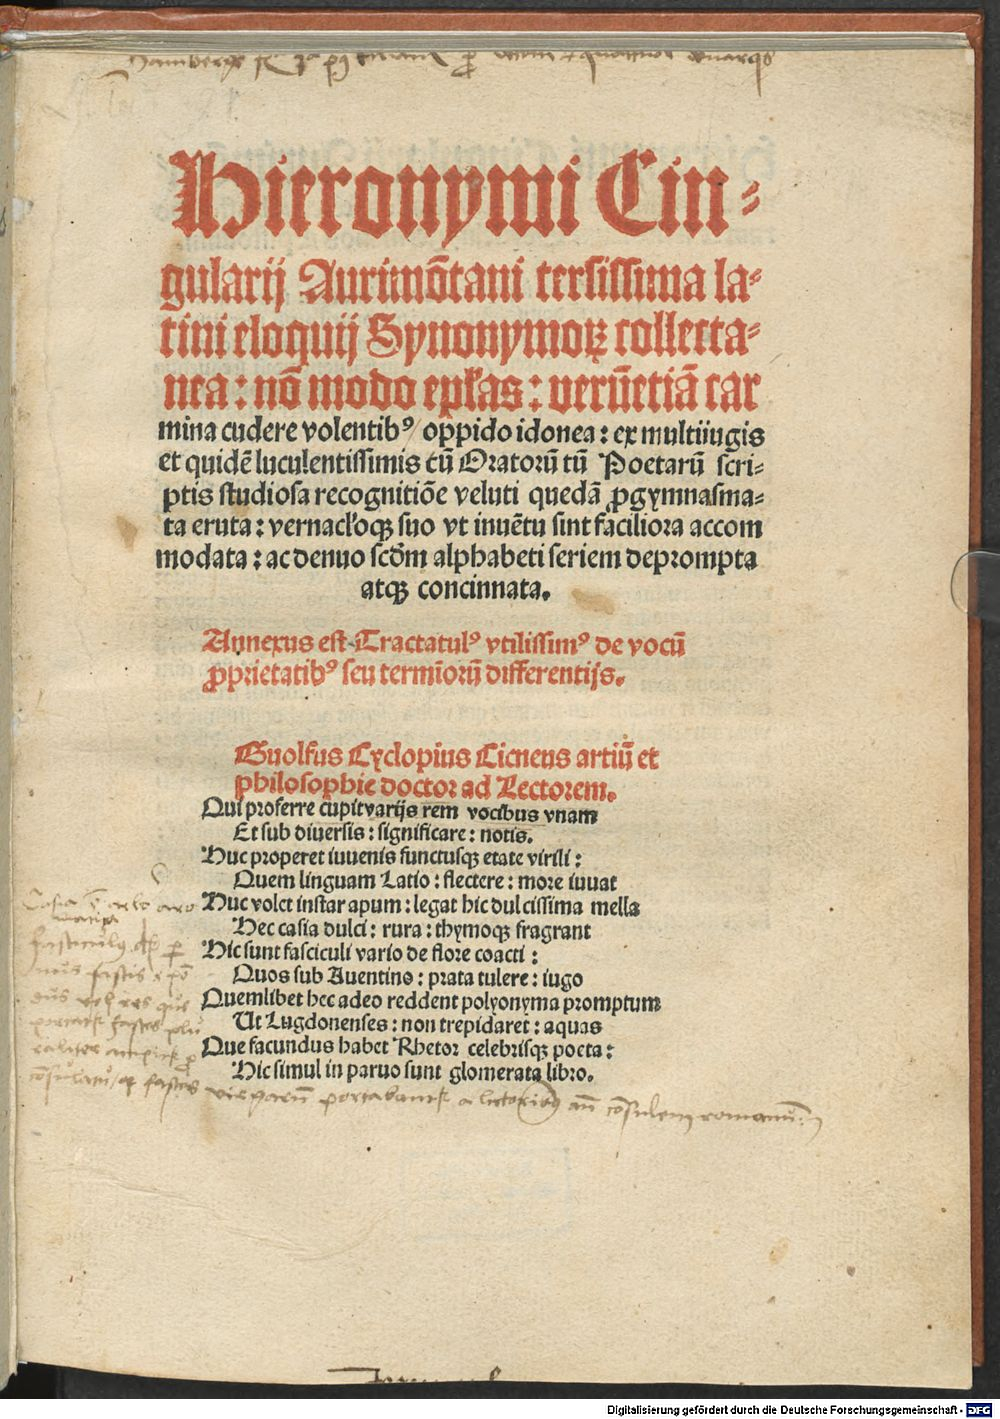 Hieronymi Cin⸗
gularij Aurimōtani tersissima la⸗
tini eloquij Synonymoꝝ collecta⸗
nea: nō modo epl̄as: verūetiā car
mina cudere volentibꝰ oppido idonea: ex multiiugis
et quidē luculentissimis cū Oratorū tū Poetarū scri⸗
ptis studiosa recognitiōe veluti quedā ꝓgymnasma⸗
ta eruta: vernacl̓oqꝫ suo vt inuētu sint faciliora accom
modata: ac denuo scd̄m alphabeti seriem deprompta
atqꝫ concinnata.
Annexus est Tractatulꝰ vtilissimꝰ de vocū
ꝓprietatibꝰ seu termīorū differentijs.
Guolfus Cyclopius Cicneus artiū et
philosophie doctor ad Lectorem.
Qui proferre cupit varijs rem vocibus vnam
Et sub diuersis: significare: notis.
Huc properet iuuenis functusqꝫ etate virili:
Quem linguam Latio: flectere: more iuuat
Huc volet instar apum: legat hic dulcissima mella
Hec casia dulci: rura: thymoqꝫ fragrant
Hic sunt fasciculi vario de flore coacti:
Quos sub Auentino: prata tulere: iugo
Quemlibet hec adeo reddent polyonyma promptum
Ut Lugdonenses: non trepidaret: aquas
Que facundus habet Rhetor celebrisqꝫ poeta:
Hic simul in paruo sunt glomerata libro.
virgarū portabant a lictoribꝰ an̄ consulem romanū
Digitalisierung gefördert durch die Deutsche Forschungsgemeinschaft - DFG